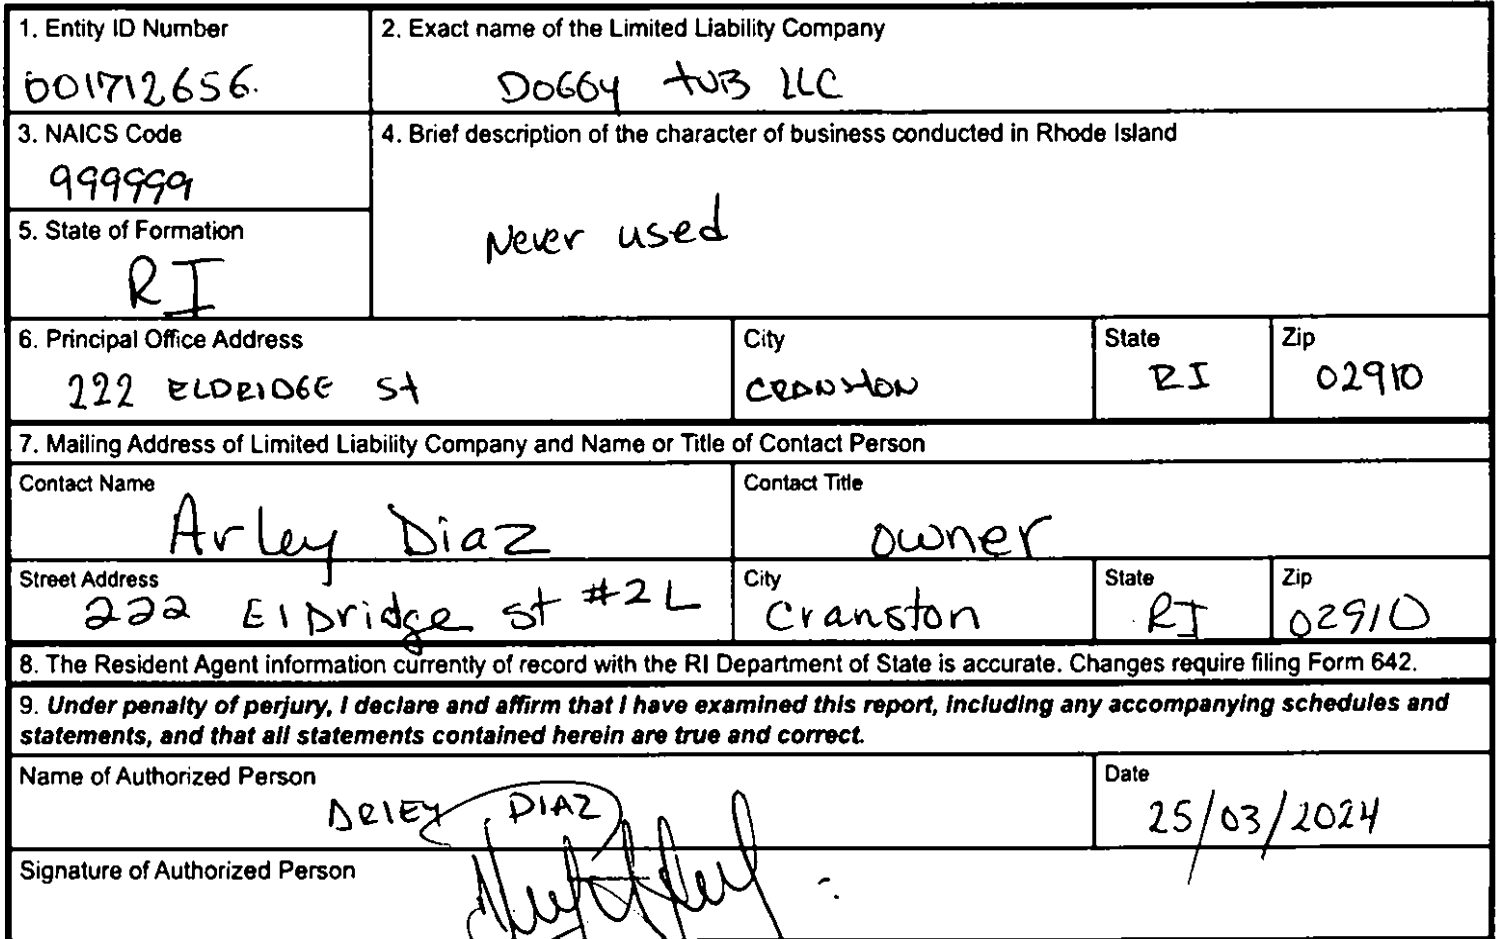 1. Entity ID Number
2. Exact name of the Limited Liability Company
001712656.
DOGGY tUB LLC
3. NAICS Code
4. Brief description of the character of business conducted in Rhode Island
999999
Never used
5. State of Formation
RI
6. Principal Office Address
City
State
Zip
222 ELDRIDGE St
CRANSTON
RI
02910
7. Mailing Address of Limited Liability Company and Name or Title of Contact Person
Contact Name
Contact Title
Arley Diaz
owner
Street Address
City
State
Zip
222 ElDridge st #2L
Cranston
RI
02910
8. The Resident Agent information currently of record with the RI Department of State is accurate. Changes require filing Form 642.
9. Under penalty of perjury, I declare and affirm that I have examined this report, including any accompanying schedules and
statements, and that all statements contained herein are true and correct.
Name of Authorized Person
Date
ARLEY DIAZ
25/03/2024
Signature of Authorized Person